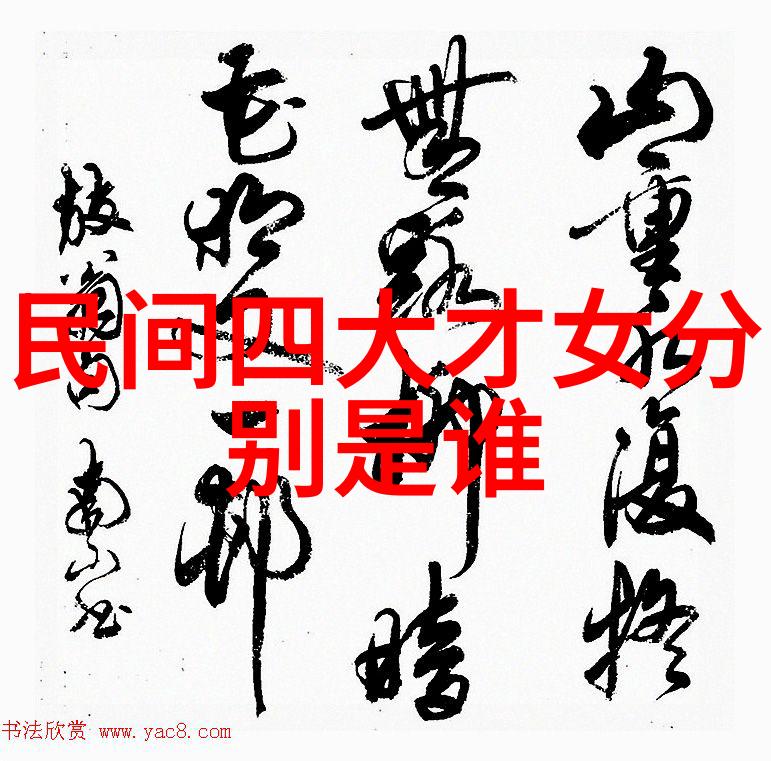 民间四大才女分
别是谁
山重水復疑
無路柳暗
花明又一村
放翁句
书法欣赏 www.yac8.com